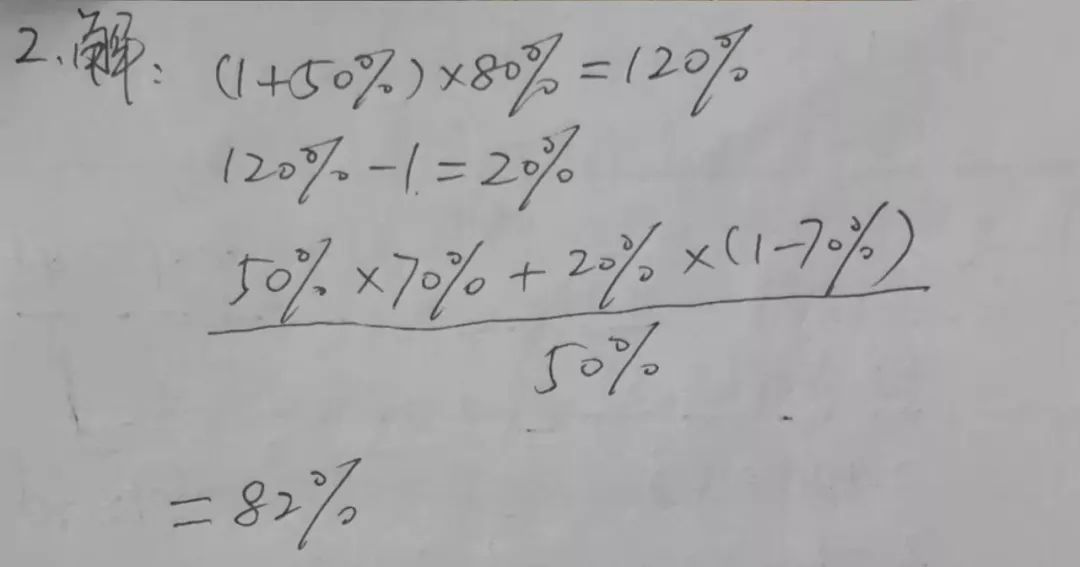 2.解: (1+50%)×80%=120%
120%-1=20%
50%×70%+20%×(1-70%)
50%
=82%